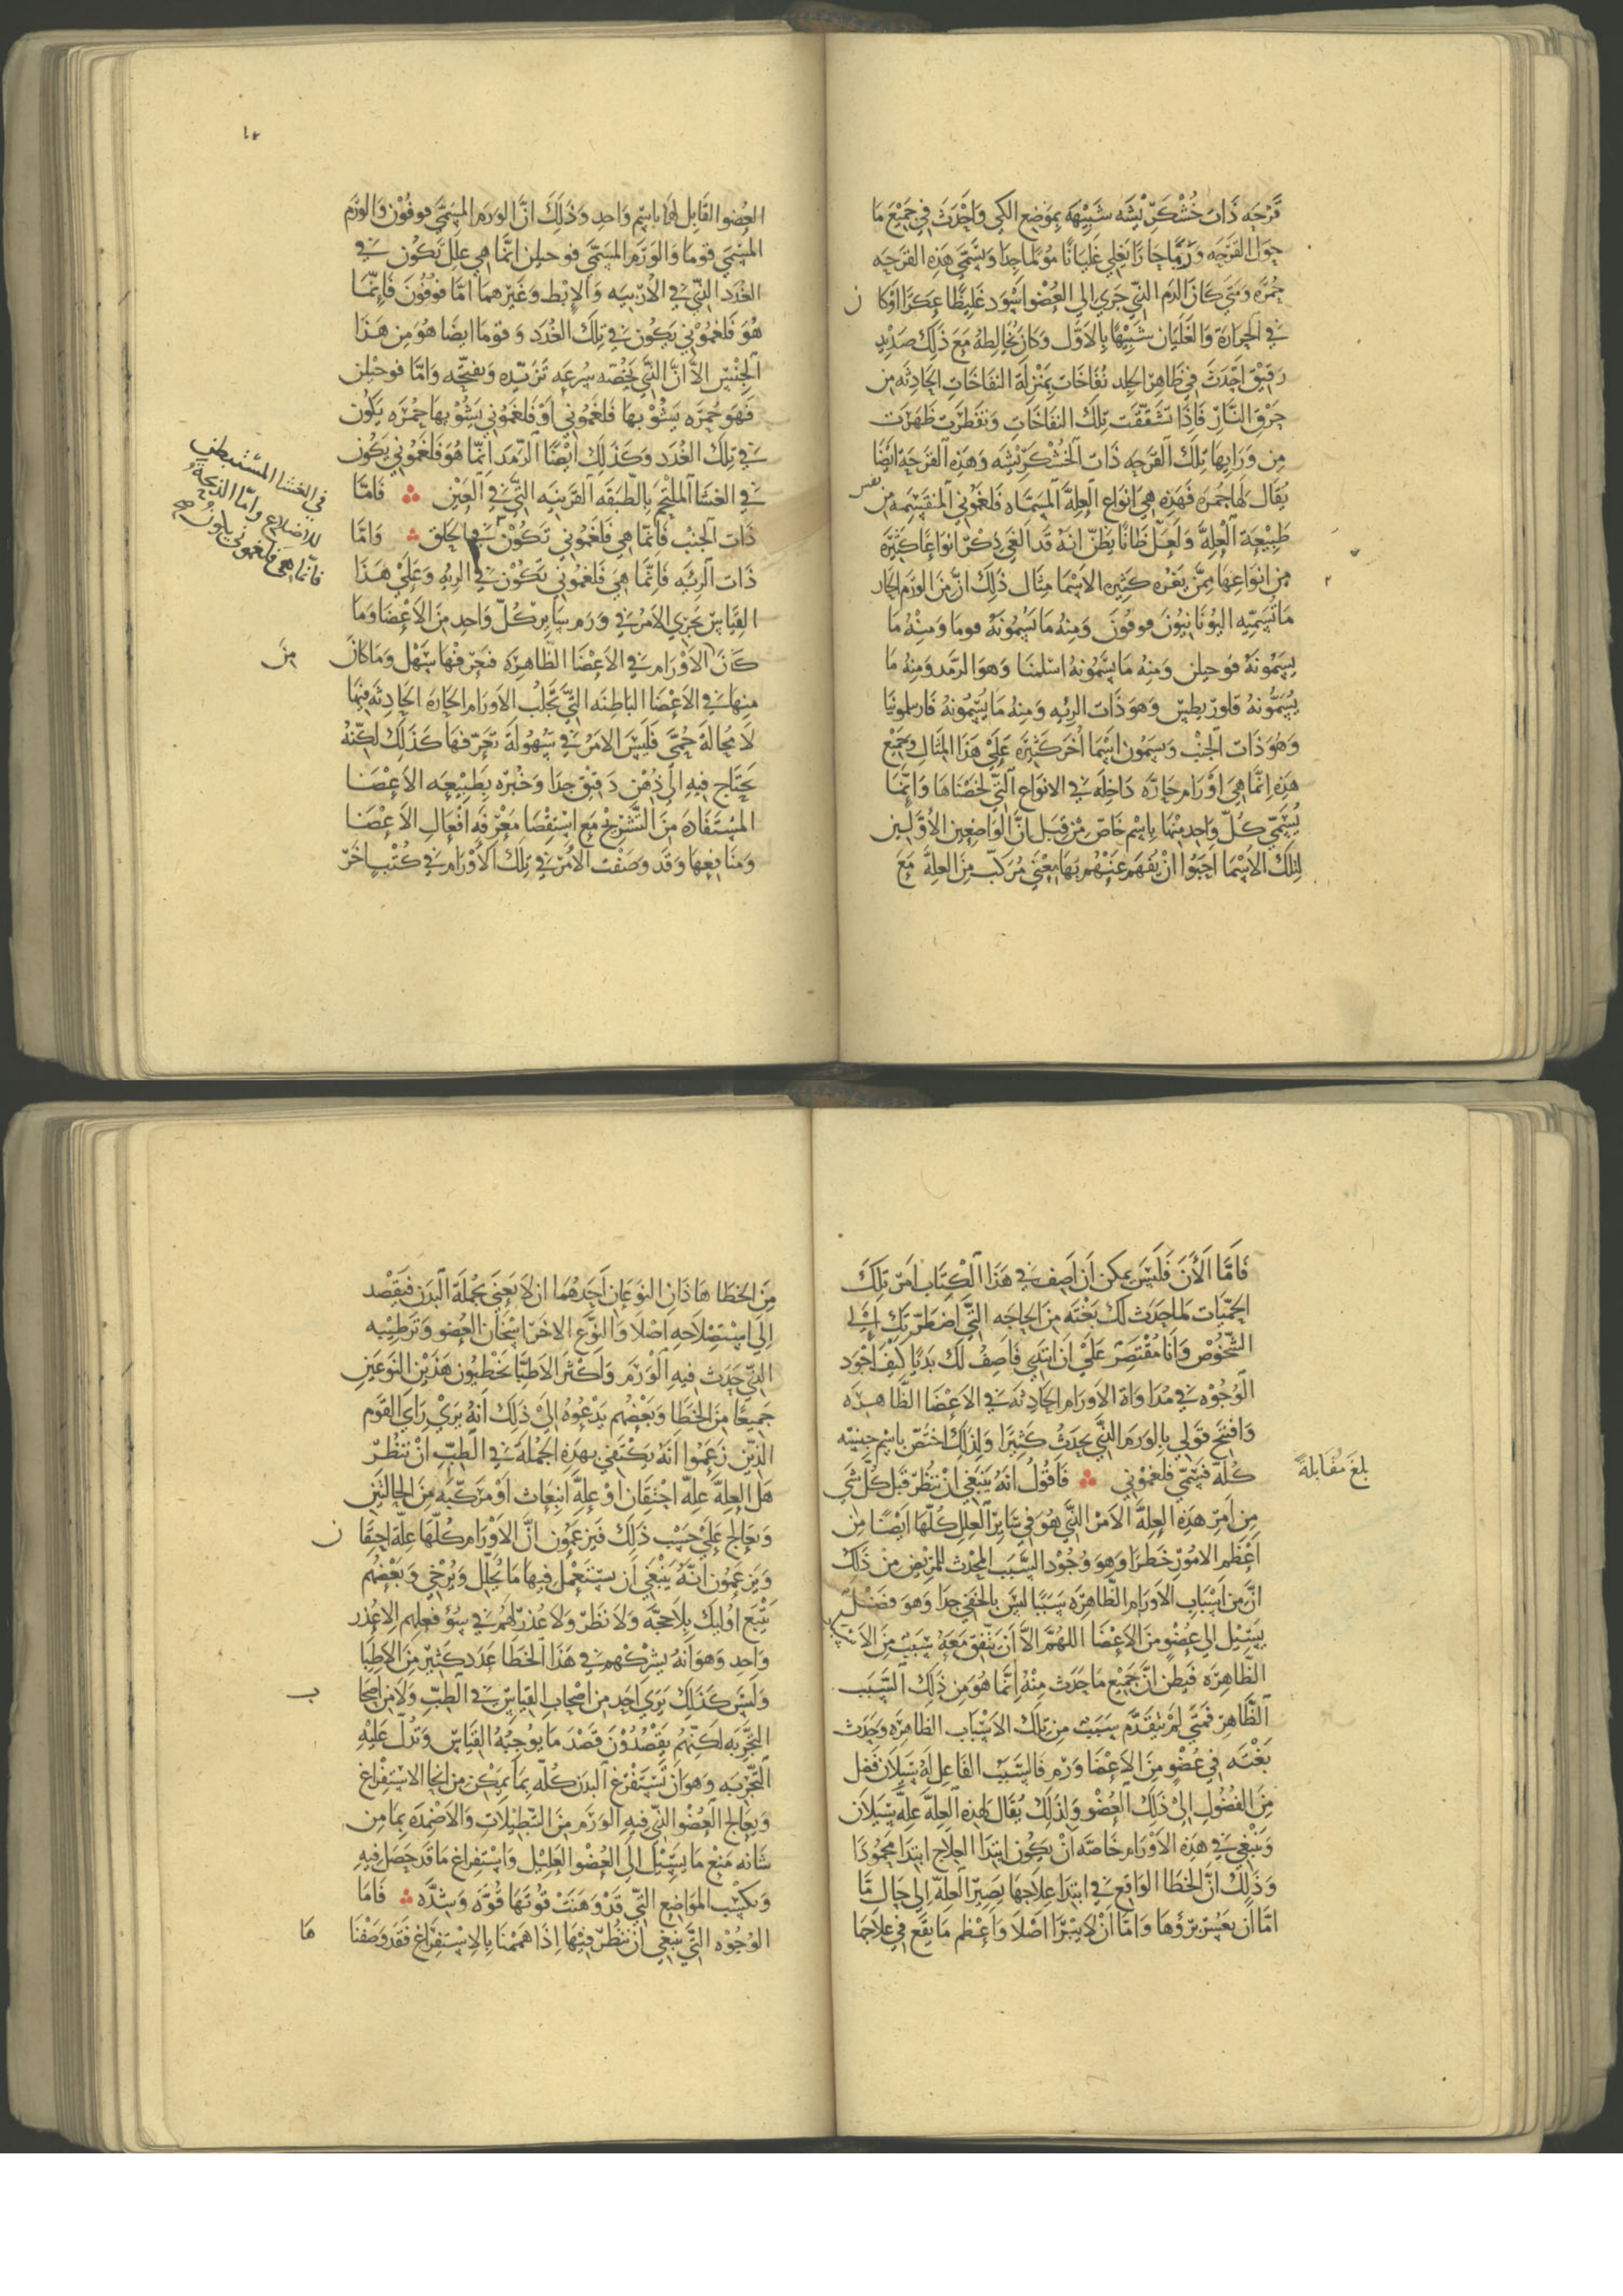 قرحه ذات خشكريشه شبيهه بموضع الكي واحدث في جميع ما
حول القرحه ورما حارا يغلي غليانا مؤلما جدا وتسمى هذه القرحه
جمره ومتى كان الدم الذي جرى الى العضو اسود غليظا عكرا او كا
ن
في الحرارة والغليان شبيها بالاول وكان يخالطه مع ذلك صديد
رقيق احدث في ظاهر الجلد نفاخات بمنزلة النفاخات الحادثه من
حرق النار فاذا تشققت تلك النفاخات وتفطرت ظهرت
من ورايها تلك القرحه ذات الخشكريشه وهذه القرحه ايضا
يقال لها جمره فهذه هي انواع العله المسماه فلغموني المنقسمه من
نفس
طبيعة العله ولعل ظانا يظن انه قد الغي ذكر انواعا كثيره
من انواعها ممن يغره كثيره الاسما مثال ذلك ان من الورم الحار
ما تسميه اليونانيون فوفون ومنه ما يسمونه فوما ومنه ما
يسمونه فوحيلن ومنه ما يسمونه اسلمنا وهو الرمد ومنه ما
يسمونه قلور يطيس وهو ذات الريه ومنه ما يسمونه فارىلمونيا
وهو ذات الجنب ويسمون اسما اخر كثيره على هذا المثال وجميع
هذه انما هي اورام حاره داخله في الانواع التي لخصناها وانما
يسمى كل واحد منها باسم خاص من قبل ان الواضعين الاولين
لتلك الاسما احبوا ان يفهم عنهم بها معنى مركب من العله مع
العضو القابل لها باسم واحد وذلك ان الورم المسمى فوفون والورم
المسمى فوما والورم المسمى فوحيلن انما هي علل تكون في
الغدد التي في الاربيه والابط وغيرهما اما فوفون فانما
هو فلغموني يكون في تلك الغدد وفوما ايضا هو من هذا
الجنس الا ان الذي يخصه سرعه تزيده وتقيحه واما فوحيلن
فهو جمره يشوبها فلغموني او فلغموني يشوبها حمره يكون
في تلك الغدد وكذلك ايضا الرمد انما هو فلغموني يكون
في الغشا الملتحم بالطبقه القرنيه التي في العين فاما
ذات الجنب فانما هي فلغموني تكون في الحلق واما
في الغشا المستبطن
للاضلاع واما الذبحة
فانما هي فلغموني يكون صح
ذات الريه فانما هي فلغموني تكون في الريه وعلى هذا
القياس يجري الامر في ورم ساير كل واحد من الاعضا وما
كان الاورام في الاعضا الظاهره فتعرفها سهل وما كان
من
منها في الاعضا الباطنه التي تجلب الاورام الحاره الحادثه فيها
لا محالة حمى فليس الامر في سهولة تعرفها كذلك لكنه
يحتاج فيه الى ذهن دقيق جدا وخبره بطبيعه الاعضا
المستفاده من التشريح مع استقصا معرفه افعال الاعضا
ومنافعها وقد وصفت الامر في تلك الاورام في كتب اخر
فاما الان فليس يمكن ان اصف في هذا الكتاب امر تلك
الحميات لما حدث لك بغته من الحاجه التي اضطرتك الى
الشخوص وانا مقتصر على ان ابتدي فاصف لك بديا كيف اجود
الوجوه في مداواة الاورام الحادثه في الاعضا الظاهره
وافتح قولي بالورم الذي يحدث كثيرا ولذلك اختص باسم جنسه
كله فسمي فلغموني فاقول انه ينبغي ان تنظر قبل كل شي
بلغ مقابلة
من امر هذه العله الامر الذي هو في ساير العلل كلها ايضا من
اعظم الامور خطرا وهو وجود السبب المحدث للمرض من ذلك
ان من اسباب الاورام الظاهره سببا ليس بالخفي جدا وهو فضل
يسيل الى عضو من الاعضا اللهم الا ان يتفق معه سبب من الاسباب
الظاهره فيظن ان جميع ما حدث منه انما هو من ذلك السبب
الظاهر فمتى لم يتقدم سبب من تلك الاسباب الظاهره وحدث
بغته في عضو من الاعضا ورم فالسبب الفاعل له سيلان فضل
من الفضول الى ذلك العضو ولذلك يقال لهذه العله علة سيلان
وينبغي في هذه الاورام خاصه ان يكون ابتدا العلاج ابتدا محمودا
وذلك ان الخطا الواقع في ابتدا علاجها يصير العله الى حال ما
اما ان يعسر برؤها واما ان لا يبرا اصلا واعظم ما يقع في علاجها
من الخطا هاذان النوعان احدهما ان لا يعنى بجملة البدن فيقصد
الى استصلاحه اصلا والنوع الاخر اسخان العضو وترطيبه
الذي حدث فيه الورم واكثر الاطبا يخطيون هذين النوعين
جميعا من الخطا وبعضهم يدعوه الى ذلك انه يرى راي القوم
الذين زعموا انه يكتفى بهذه الجملة في الطب ان تنظر
هل العله علة احتقان او علة انبعاث او مركبه من الحالتين
ويعالج على حسب ذلك فيزعمون ان الاورام كلها علة احتقا
ن
ويزعمون انه ينبغي ان يستعمل فيها ما يحلل ويرخي وبعضهم
يتبع اوليك بلا حجه ولا نظر ولا عذر لهم في سوء فعلهم الا عذر
واحد وهو انه يشركهم في هذا الخطا عدد كثير من الاطبا
وليس كذلك يرى احد من اصحاب القياس في الطب ولا من اصحا
ب
التجربه لكنهم يقصدون قصد ما يوجبه القياس وتدل عليه
التجربه وهو ان تستفرغ البدن كله بما يمكن من انحا الاستفراغ
ويعالج العضو الذي فيه الورم من التنطيلات والاضمده بما من
شانه منع ما يسيل الى العضو العليل واستفراغ ما قد حصل فيه
ويكسب المواضع التي قد وهنت قوتها قوه وشده فاما
الوجوه التي ينبغي ان تنظر فيها اذا هممنا بالاستفراغ فقد وصفنا
ها